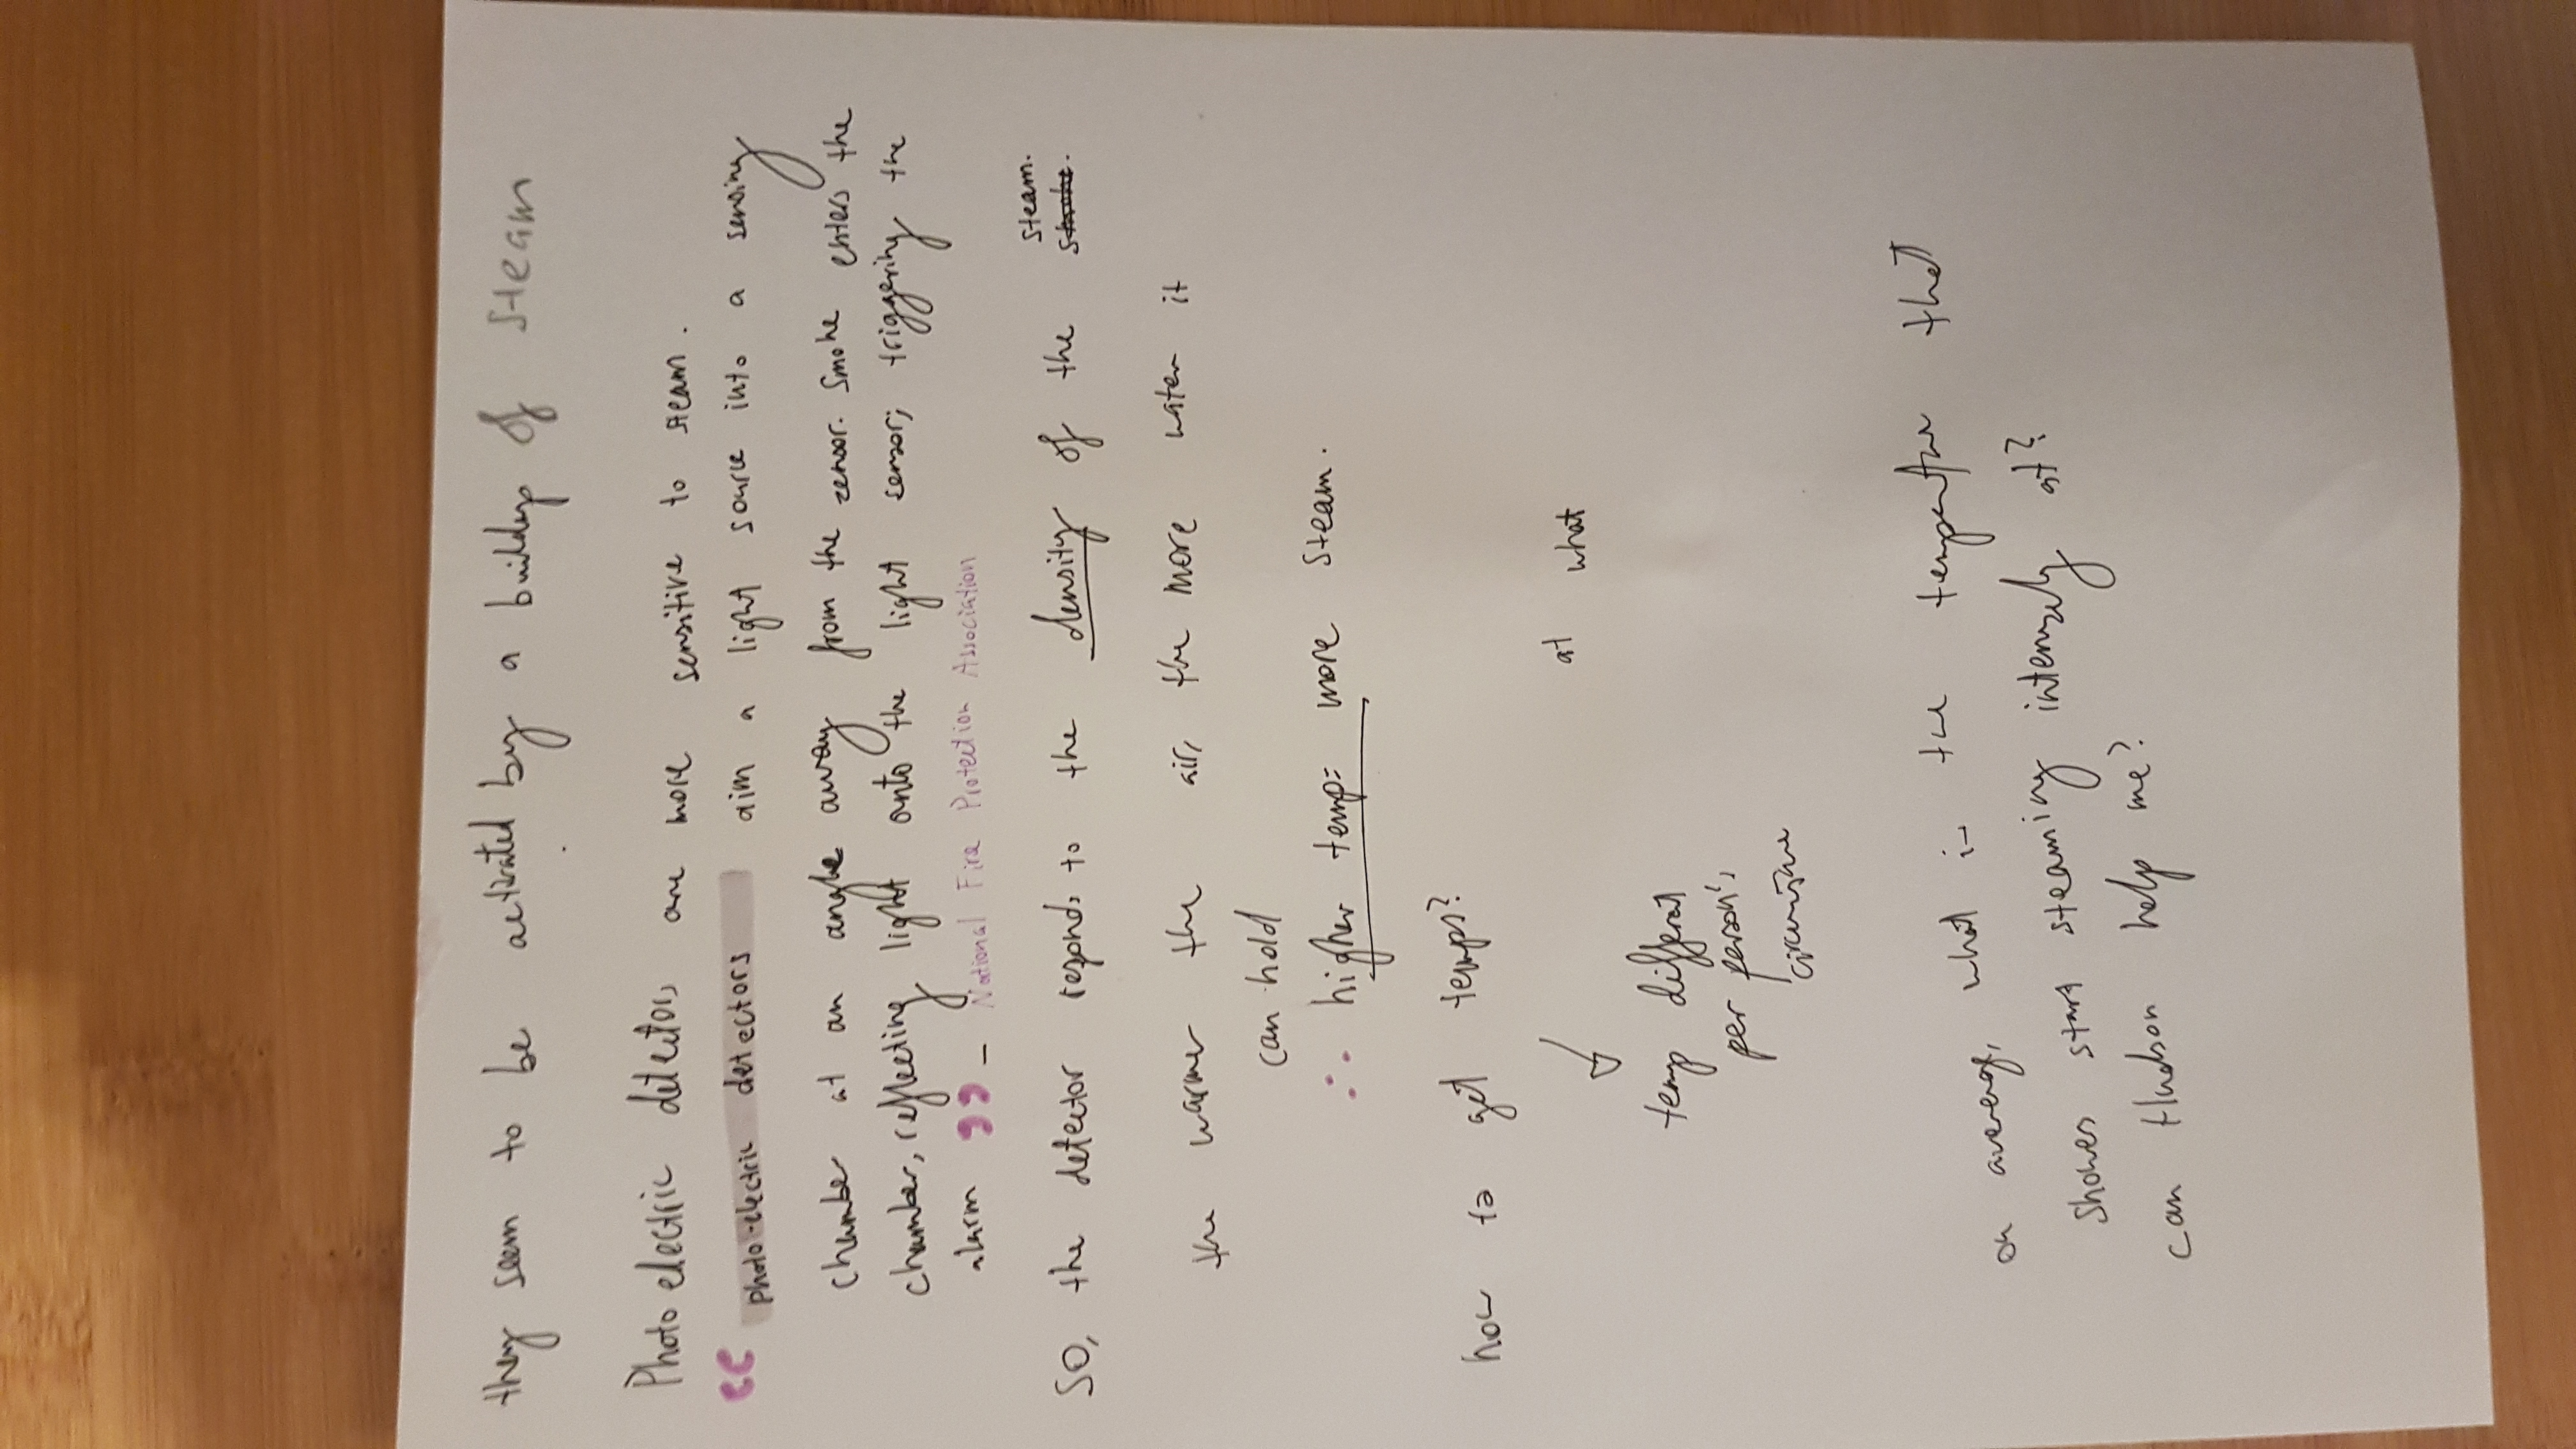 they seem to be activated by a buildup of steam
Photo electric detectors are more sensitive to steam.
“ photo-electric detectors aim a light source into a sensing
chamber at an angle away from the zensor. Smoke enters the
chamber, reflecting light onto the light sensor; triggering the
alarm ” – National Fire Protection Association
So, the detector responds to the density of the smoke. steam.
the warmer the air, the more water it
can hold
∴ higher temp = more steam.
how to get temps?
at what
temp different
per person's
on average, what is the temperature that
showers start steaming intensely at?
can Hudson help me?